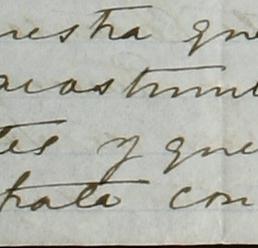 uestra que
acostum
tes y que
trata con